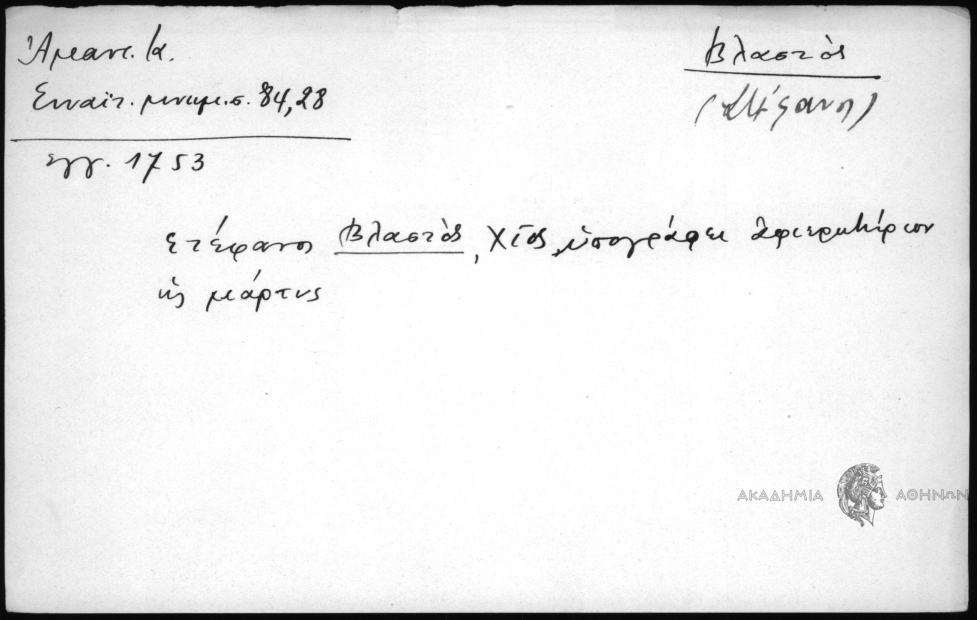 Ἀμαντ. Κ.
Σιναϊτ. μνημ. σ. 84,28
ἔγγ. 1753
Βλαστὸς
(Στέφανος)
Στέφανος Βλαστὸς, Χῖος, ὑπογράφει ἀφιερωτήριον
ὡς μάρτυς
ΑΚΑΔΗΜΙΑ ΑΘΗΝΩΝ